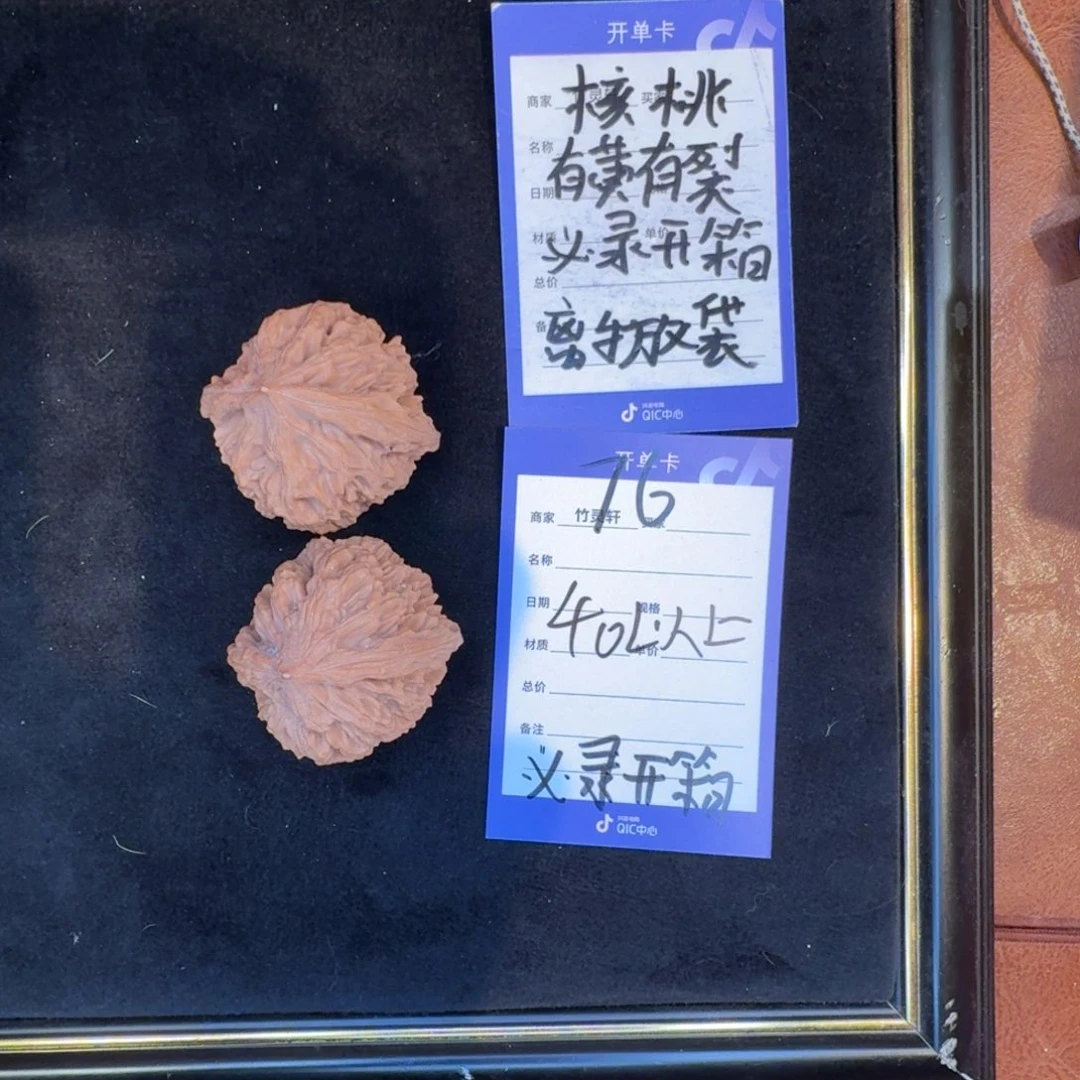 开单卡
商家 核桃
名称
日期 有黄有裂
材质 必录开箱 单价
总价
离手放袋
抖音电商
QIC中心
开单卡
16
商家 竹灵轩 买家
名称
日期 规格
40以上
材质 单价
总价
备注
必录开箱
抖音电商
QIC中心